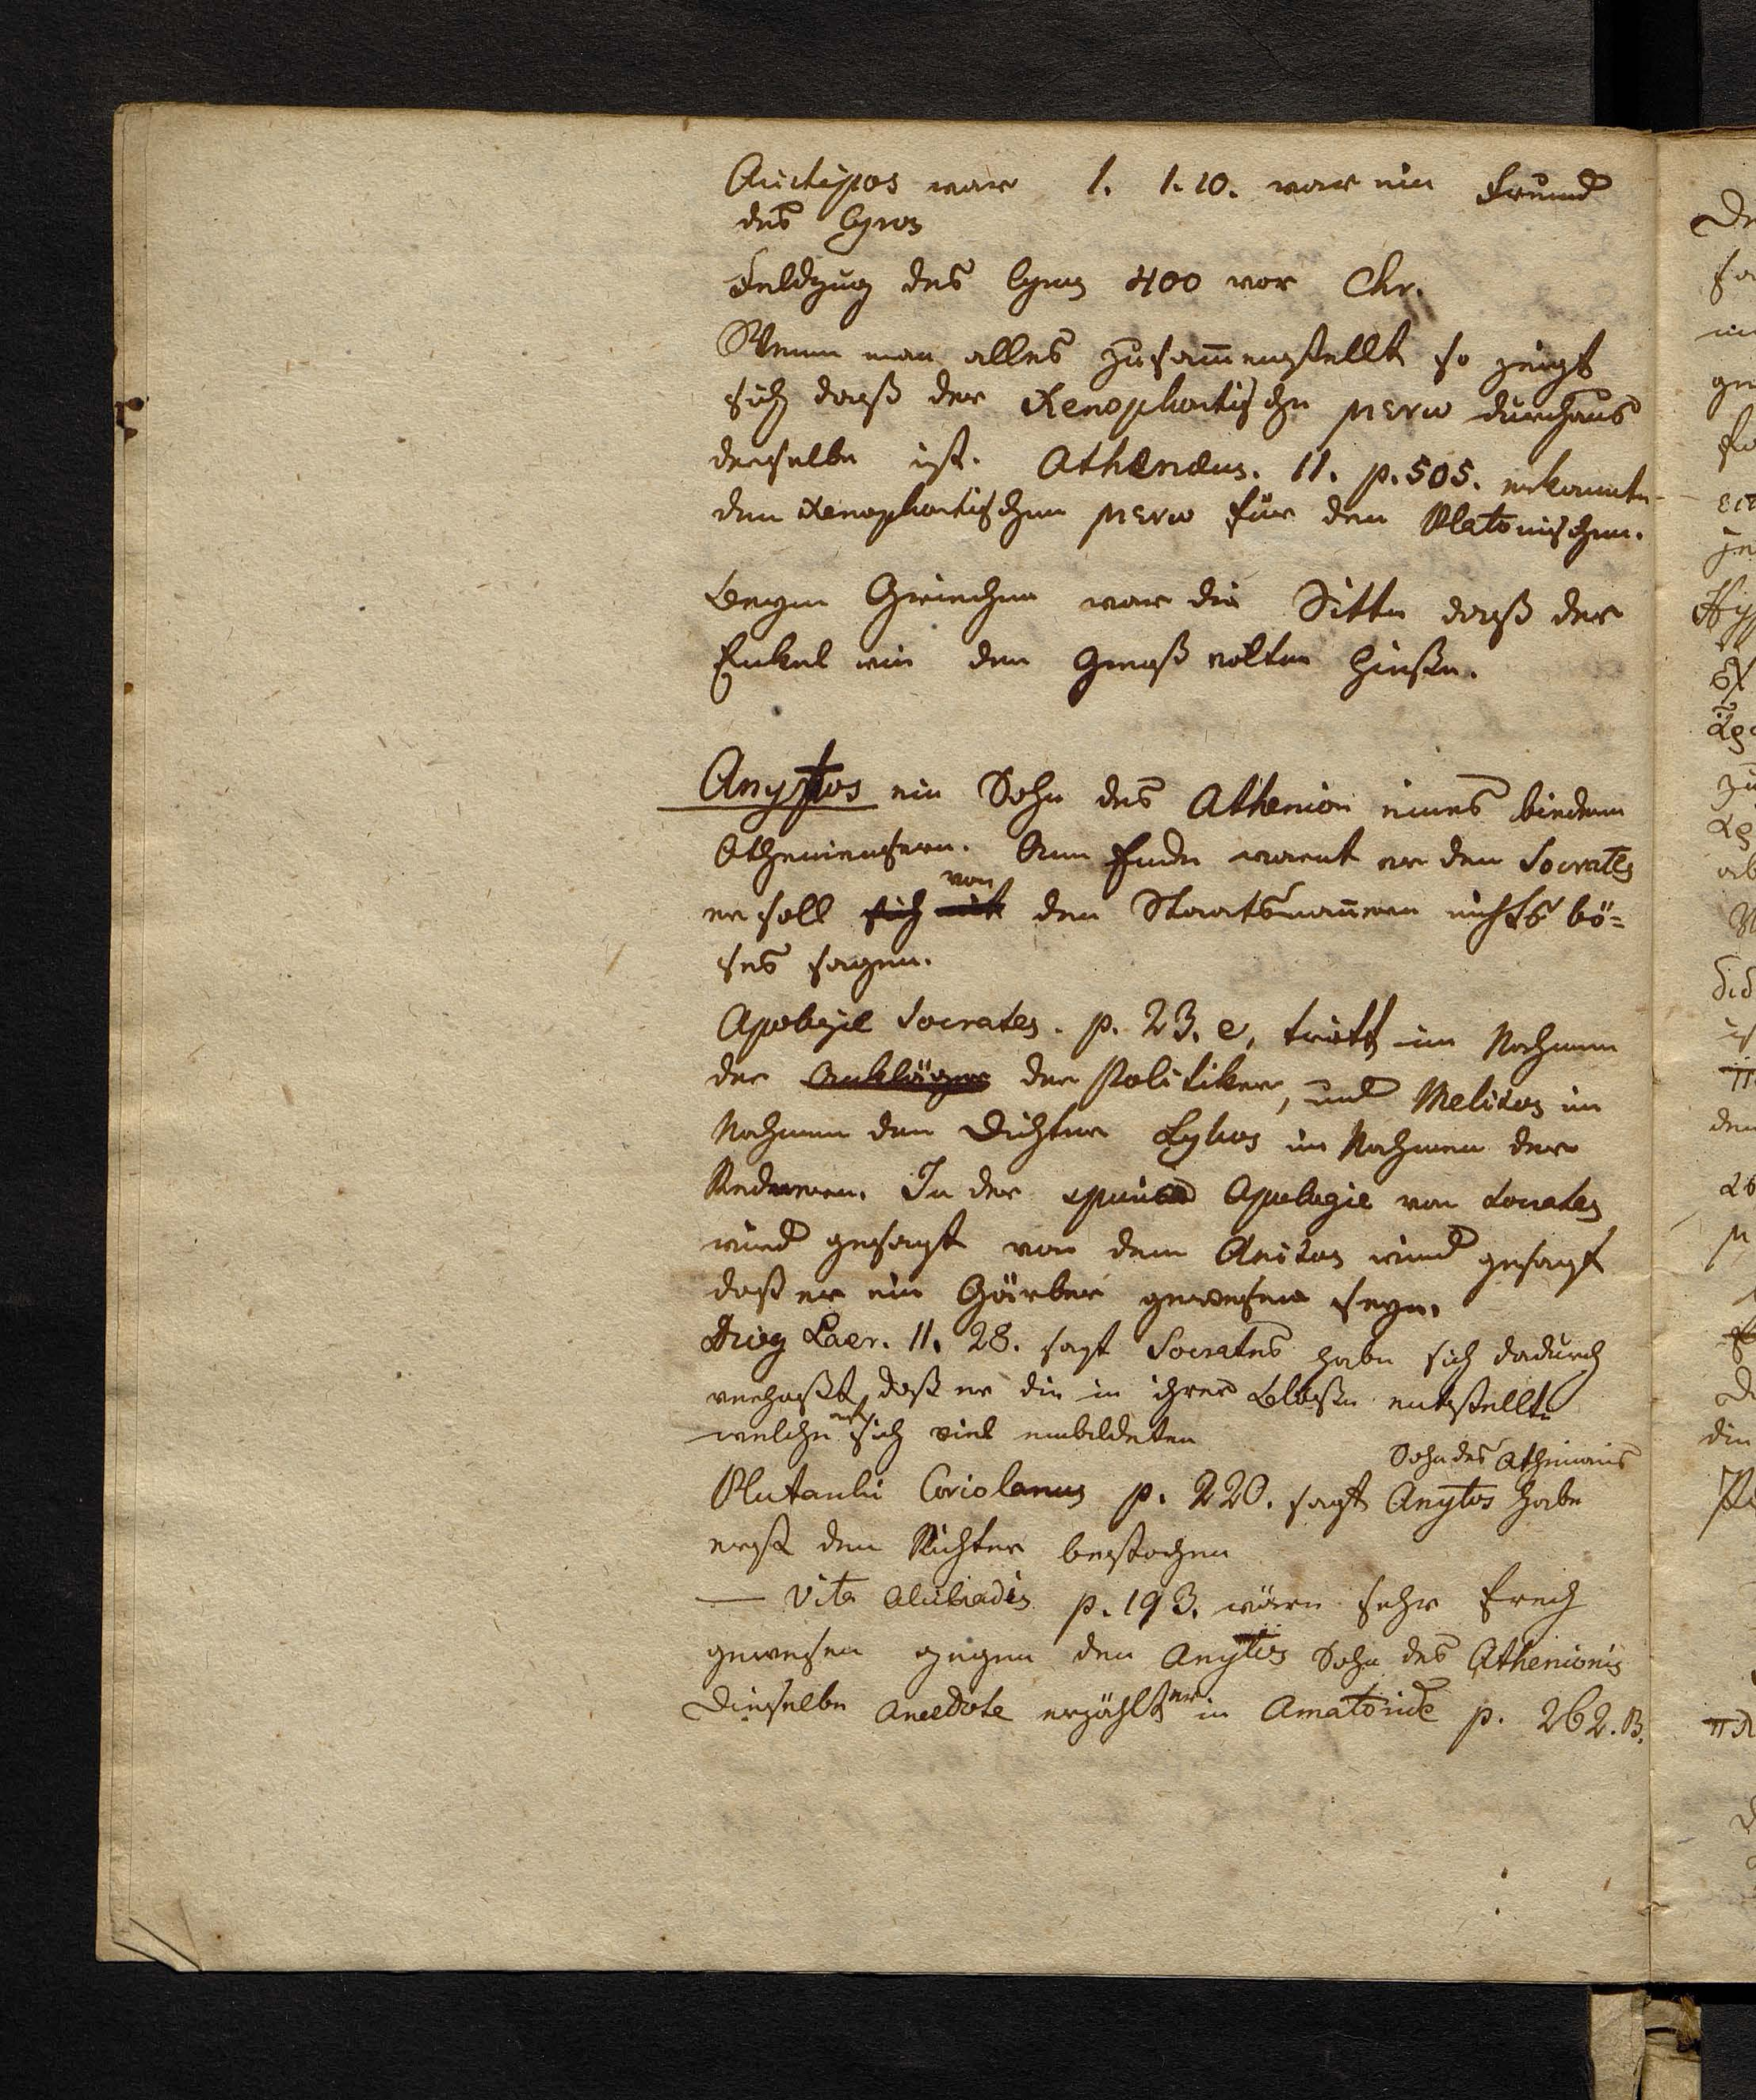 Aristipos war 1. 1. 10. war ein Freund
des Cyros
Feldzug des Cyrus 400 vor Chr.
Wenn man alles zusam̅enstellt so zeigt
sich daß der Xenophontische μενω durchaus
derselbe ist. Athenäus. 11. p. 505. erkannte
den Xenophontischen μενω für den Platonischen.
Beym Griechen war die Sitte daß der
Enkel wie den Groß vätter hießen.
Anytos ein Sohn des Athenion eines biedern
Atheniensern. Am Ende warnt er den Socrates
er soll sich mit von den Staatsmän̅ern nichts bö-
ses sagen.
Apologie Socrates. p. 23. e, tritt im Nahmen
der Ankläger der Politiker, und Melitos im
Nahmen den Dichter Lykos im Nahmen der
Rednern. In der Apologie von Socrates
wird gesagt von dem Anitos wird gesagt
daß er ein Gärber gewesen seyn.
Diog Laer. 11. 28. sagt Socrates habe sich dadurch
verhaßt, daß er die in ihrer Bloße entstellte
welche auf sich viel einbildeten
Sohn des Athenions
Plutarchi Coriolanus p. 220. sagt Anytos habe
erst den Richter bestochen
— Vita Alcibiadis p. 193. wäre sehr frech
gewesen gegen den Anytos Sohn des Athenionis
Dieselbe Anecdote erzählt er in Amatoride p. 262. B.